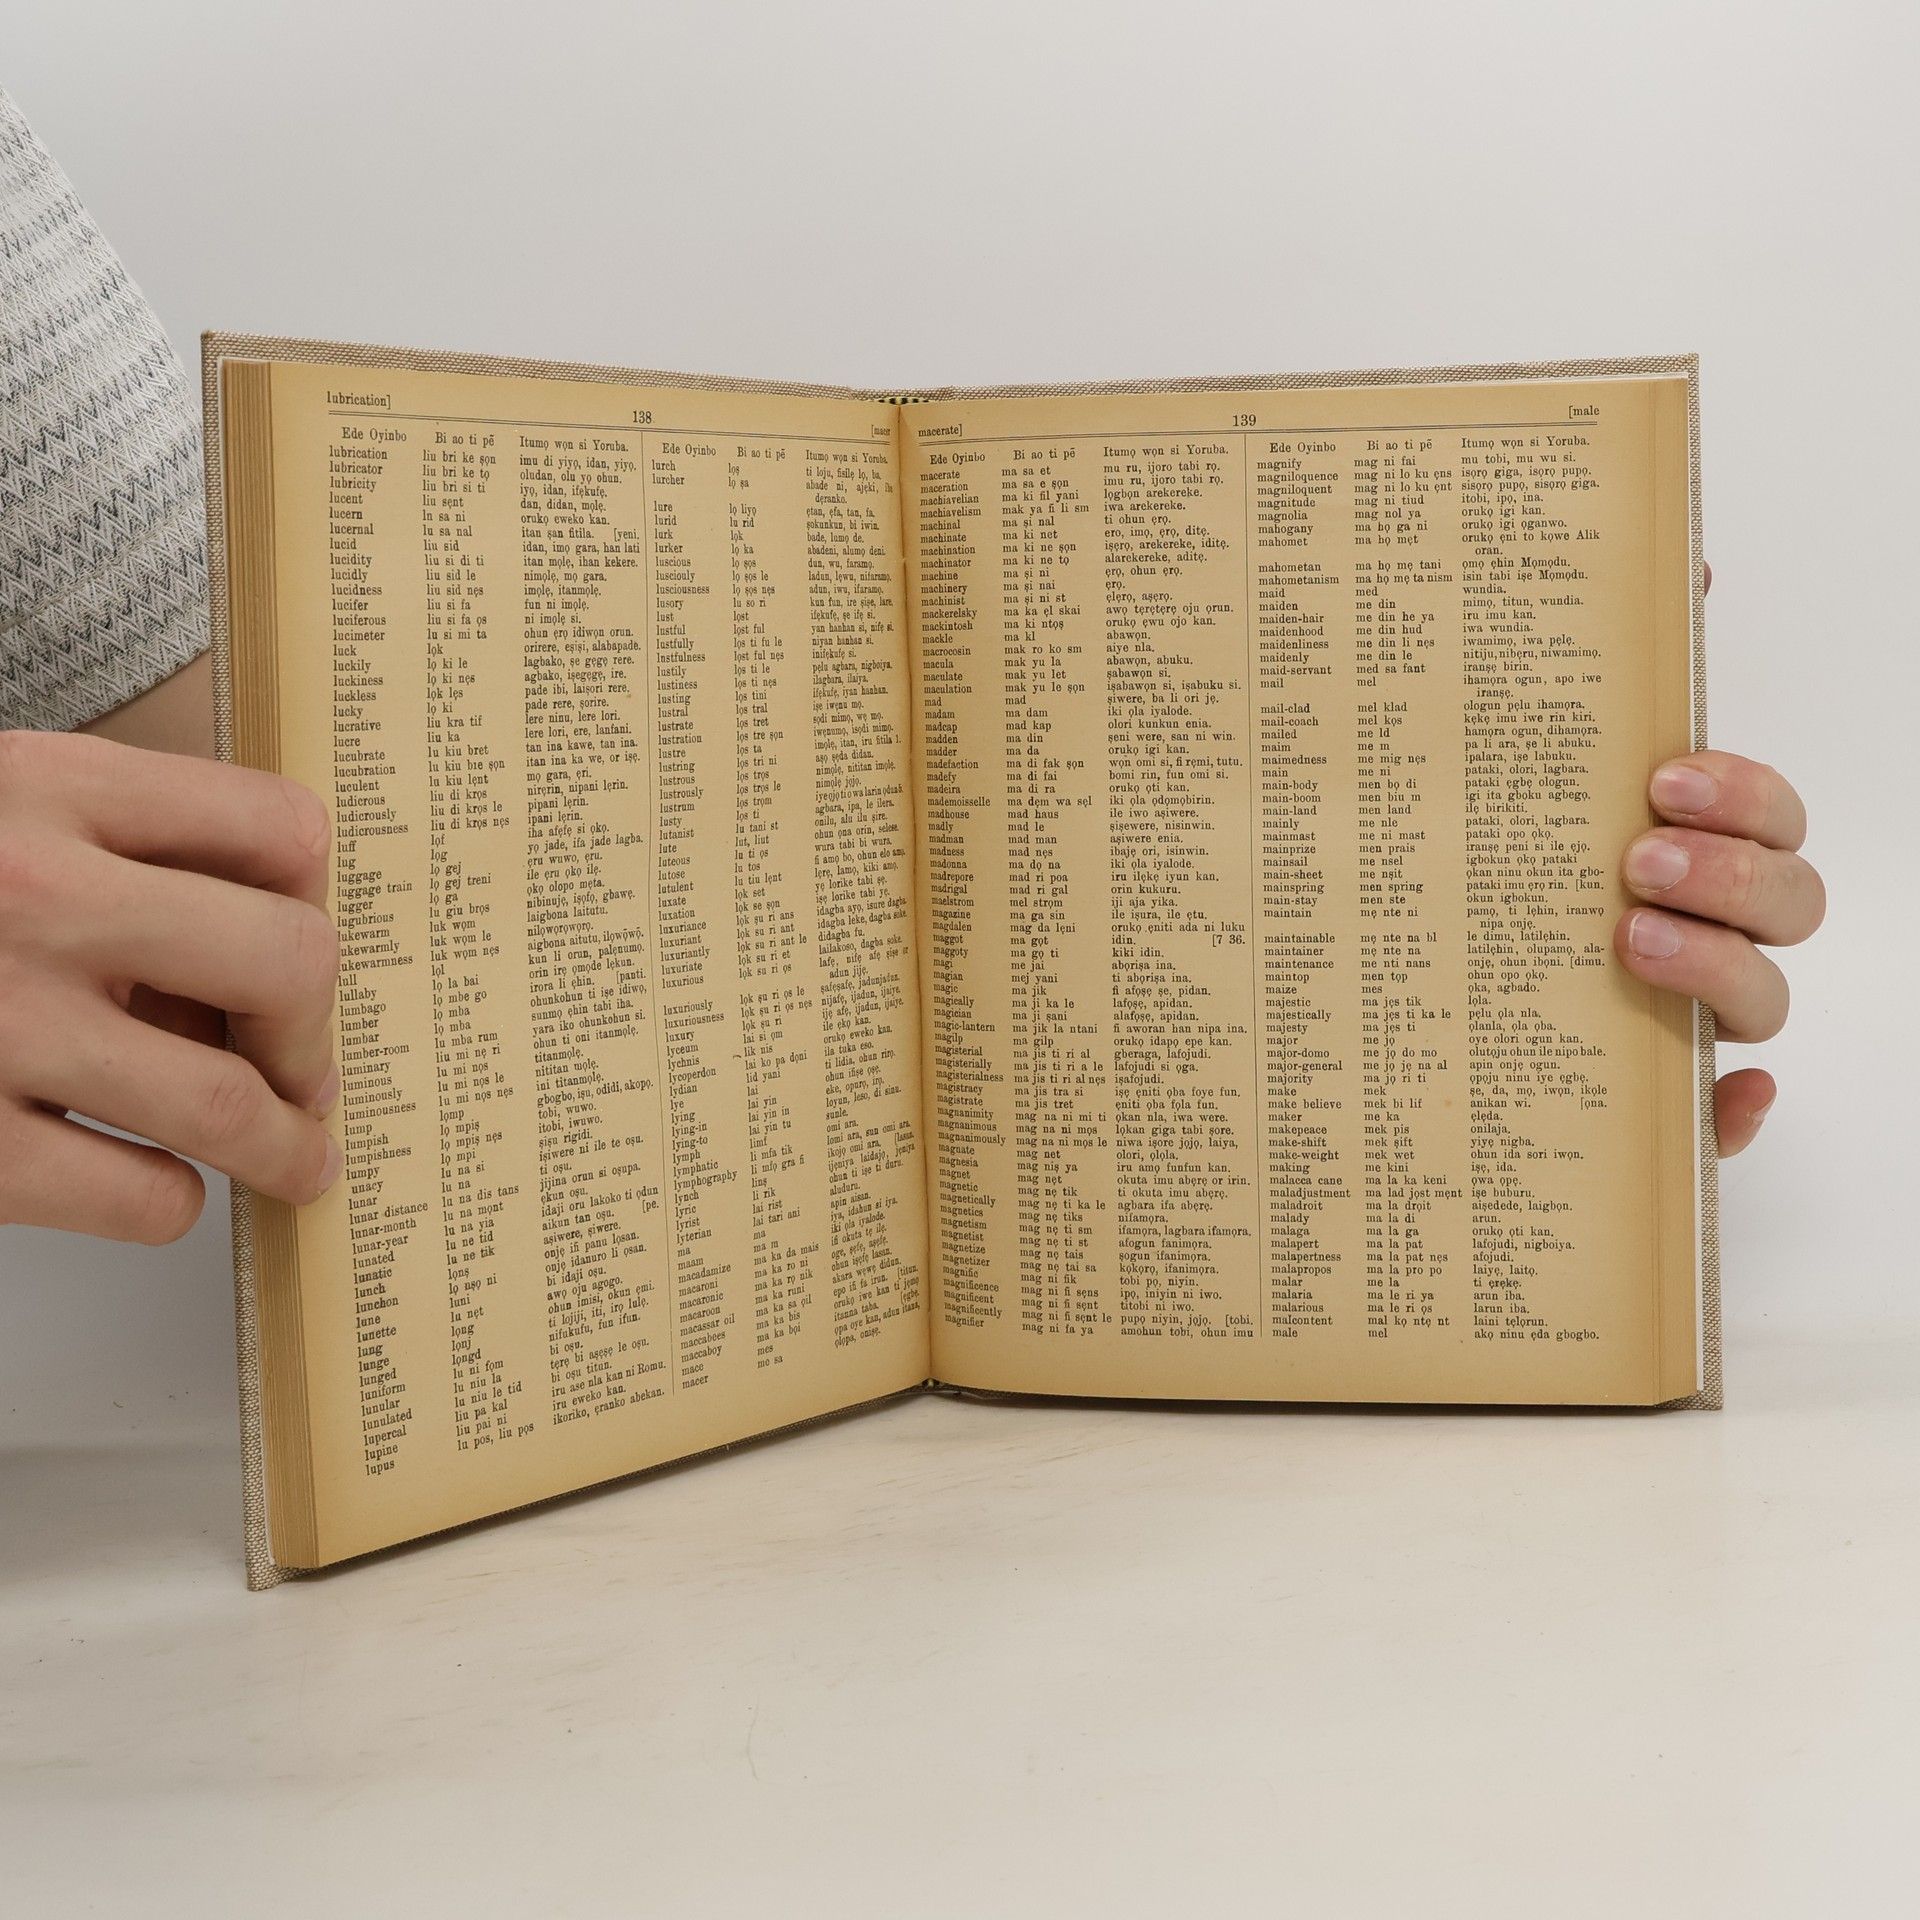 lubrication] 138 [macer
Ede Oyinbo Bi ao ti pẽ Itumọ wọn si Yoruba.
lubrication liu bri ke ṣọn imu di yiyọ, idan, yiyọ.
lubricator liu bri ke tọ oludan, olu yọ ohun.
lubricity liu bri si ti iyọ, idan, ifẹkufẹ.
lucent liu sẹnt dan, didan, mọlẹ.
lucern lu sa ni orukọ eweko kan.
lucernal lu sa nal itan ṣan fitila. [yeni.
lucid liu sid idan, imọ gara, han lati
lucidity liu si di ti itan mọlẹ, ihan kekere.
lucidly liu sid le nimọlẹ, mọ gara.
lucidness liu sid nẹs imọlẹ, itanmọlẹ.
lucifer liu si fa fun ni imọlẹ.
luciferous liu si fa ọs ni imọlẹ si.
lucimeter lu si mi ta ohun ẹrọ idiwọn orun.
luck lọk orirere, eṣiṣi, alabapade.
luckily lọ ki le lagbako, ṣe gẹgẹ rere.
luckiness lọ ki nẹs agbako, iṣegẹgẹ, ire.
luckless lọk lẹs pade ibi, laiṣori rere.
lucky lọ ki pade rere, ṣorire.
lucrative liu kra tif lere ninu, lere lori.
lucre liu ka lere lori, ere, lanfani.
lucubrate lu kiu bret tan ina kawe, tan ina.
lucubration lu kiu bre ṣọn itan ina ka we, or iṣẹ.
luculent lu kiu lẹnt mọ gara, ẹri.
ludicrous liu di krọs nirẹrin, nipani lẹrin.
ludicrously liu di krọs le pipani lẹrin.
ludicrousness liu di krọs nẹs ipani lẹrin.
luff lọf iha afẹfẹ si ọkọ.
lug lọg yọ jade, ifa jade lagba.
luggage lọ gej ẹru wuwo, ẹru.
luggage train lọ gej treni ile ẹru ọkọ ilẹ.
lugger lọ ga ọkọ olopo mẹta.
lugubrious lu giu brọs nibinujẹ, iṣọfọ, gbawẹ.
lukewarm luk wọm laigbona laitutu.
ukewarmly luk wọm le nilọwọrọwọrọ.
ukewarmness luk wọm nẹs aigbona aitutu, ilọwọ̃wọ̃.
lull lọl kun li orun, palẹnumọ.
lullaby lọ la bai orin irẹ ọmọde lẹkun.
lumbago lọ mbe go irora li ẹhin. [panti.
lumber lọ mba ohunkohun ti iṣe idiwọ,
lumbar lọ mba sunmọ ẹhin tabi iha.
lumber-room lu mba rum yara iko ohunkohun si.
luminary liu mi nẹ ri ohun ti oni itanmọlẹ.
luminous lu mi nọs titanmọlẹ.
luminously lu mi nọs le nititan mọlẹ.
luminousness lu mi nọs nẹs ini titanmọlẹ.
lump lọmp gbogbo, iṣu, odidi, akopọ.
lumpish lọ mpiṣ tobi, wuwo.
lumpishness lọ mpiṣ nẹs itobi, iwuwo.
lumpy lọ mpi ṣiṣu rigidi.
unacy lu na si iṣiwere ni ile te oṣu.
lunar lu na ti oṣu.
lunar distance lu na dis tans jijina orun si oṣupa.
lunar-month lu na mọnt ẹkun oṣu.
lunar-year lu na yia idaji oru lakoko ti ọdun
lunated lu ne tid aikun tan oṣu. [pe.
lunatic lu ne tik aṣiwere, ṣiwere.
lunch lọnṣ onjẹ ifi panu lọsan.
lunchon lọ nṣọ ni onjẹ idanuro li ọsan.
lune luni bi idaji oṣu.
lunette lu nẹt awọ oju agogo.
lung lọng ohun imisi, okun ẹmi.
lunge lọnj ti lojiji, iti, irọ lulẹ.
lunged lọngd nifukufu, fun ifun.
luniform lu ni fọm bi oṣu.
lunular lu niu la tẹrẹ bi aṣẹṣẹ le oṣu.
lunulated lu niu le tid bi oṣu titun.
lupercal liu pa kal iru ase nla kan ni Romu.
lupine liu pai ni iru eweko kan.
lupus lu pos, liu pọs ikoriko, ẹranko abekan.
Ede Oyinbo Bi ao ti pẽ Itumọ wọn si Yoruba.
lurch lọṣ ti loju, fisile lọ, ba.
lurcher lọ ṣa abade ni, ajẹki, iba
dẹranko.
lure lọ liyọ ẹtan, ẹfa, tan, fa.
lurid lu rid ṣokunkun, bi iwin.
lurk lọk bade, lumọ de.
lurker lọ ka abadeni, alumọ deni.
luscious lọ ṣos dun, wu, faramọ.
lusciouly lọ ṣos le ladun, lẹwu, nifaramọ.
lusciousness lọ ṣos nẹs adun, iwu, ifaramọ.
lusory lu so ri kun fun, ire ṣiṣe, lare.
lust lọst ifẹkufẹ, ṣe ifẹ si.
lustful lọst ful yan hanhan si, nifẹ si.
lustfully lọs ti fu le niyan hanhan si.
lnstfulness lọst ful nẹs inifẹkufẹ si.
lustily lọs ti le pẹlu agbara, nigboiya.
lustiness lọs ti nẹs ilagbara, ilaiya.
lusting lọs tini ifẹkufẹ, iyan hanhan.
lustral lọs tral iṣe iwẹnu mọ.
lustrate lọs tret sọdi mimọ, wẹ mọ.
lustration lọs tre ṣọn iwẹnumọ, isọdi mimọ.
lustre lọs ta imọlẹ, itan, iru fitila 1.
lustring lọs tri ni aṣọ ṣẹda didan.
lustrous lọs trọs nimọlẹ, nititan imọlẹ.
lustrously lọs trọs le nimọlẹ jọjọ.
lustrum lọs trọm
lusty lọs ti agbara, ipa, le ilera.
lutanist lu tani st onilu, alu ilu ṣire.
lute lut, liut ohun ọna orin, selese.
luteous lu ti ọs wura tabi bi wura.
lutose lu tos fi amọ bo, ohun elo amọ.
lutulent lu tiu lẹnt lẹrẹ, lamọ, kiki amọ.
luxate lọk set yẹ lorike tabi ṣẹ.
luxation lọk se ṣọn iyẹ lorike tabi yẹ.
luxuriance lọk ṣu ri ans idagba ayọ, isure dagba.
luxuriant lọk ṣu ri ant idagba leke, dagba soke.
luxuriantly lọk ṣu ri ant le didagba fu.
luxuriate lọk ṣu ri et lailakoso, dagba soke.
luxurious lọk ṣu ri ọs lafẹ, nifẹ afẹ ṣiṣe or
adun jijẹ.
luxuriously lọk ṣu ri ọs le ṣafẹṣafẹ, jadunjadun.
luxuriousness lọk ṣu ri ọs nẹs nijafẹ, ijadun, ijaiye.
luxury lọk ṣu ri ijẹ afẹ, ijadun, ijaiye.
lyceum lai si ọm ile ẹkọ kan.
lychnis lik nis orukọ eweko kan.
lycoperdon lai ko pa dọni ila tuka eso.
lydian lid yani ti lidia, ohun rirọ.
lye lai ohun ifiṣe ọṣẹ.
lying lai yin eke, opurọ, irọ.
lying-in lai yin in loyun, leso, di sinu.
lying-to lai yin tu sunle.
lymph limf omi ara.
lymphatic li mfa tik lomi ara, sun omi ara.
lymphography li mfọ gra fi ikojọ omi ara. [lasan.
lynch linṣ ijẹniya laidajọ, jẹniya
lyric li rik ohun ti iṣe ti duru.
lyrist lai rist aluduru.
lyterian lai tari ani apin aisan.
ma ma iya, idahun si iya.
maam ma m iki ọla iyalode.
macadamize ma ka da mais ifi okuta tẹ ilẹ.
macaroni ma ka ro ni oge, ṣẹfẹ, aṣẹfẹ.
macaronic ma ka rọ nik ohun iṣẹfẹ lasan.
macaroon ma ka runi akara wẹwẹ didun.
macassar oil ma ka sa ọil epo ifi fa irun. [titun.
maccabees ma ka bis orukọ iwe kan ti jẹmọ
maccaboy ma ka bọi itanna taba. [ẹgbẹ.
mace mes ọpa oye kan, adun itana,
macer me sa ọlọpa, oniṣẹ.
macerate] 139 [male
Ede Oyinbo Bi ao ti pẽ Itumọ wọn si Yoruba.
macerate ma sa et mu ru, ijoro tabi rọ.
maceration ma sa e ṣọn imu ru, ijoro tabi rọ.
machiavelian ma ki fil yani lọgbọn arekereke.
machiavelism mak ya fi li sm iwa arekereke.
machinal ma ṣi nal ti ohun ẹrọ.
machinate ma ki net ero, imọ, ẹrọ, ditẹ.
machination ma ki ne ṣọn iṣẹrọ, arekereke, iditẹ.
machinator ma ki ne tọ alarekereke, aditẹ.
machine ma ṣi ni ẹrọ, ohun ẹrọ.
machinery ma ṣi nai ẹrọ.
machinist ma ṣi ni st ẹlẹrọ, aṣẹrọ.
mackerelsky ma ka ẹl skai awọ tẹrẹtẹrẹ oju ọrun.
mackintosh ma ki ntọṣ orukọ ẹwu ojo kan.
mackle ma kl abawọn.
macrocosin mak ro ko sm aiye nla.
macula mak yu la abawọn, abuku.
maculate mak yu let ṣabawọn si.
maculation mak yu le ṣọn iṣabawọn si, iṣabuku si.
mad mad ṣiwere, ba li ori jẹ.
madam ma dam iki ọla iyalode.
madcap mad kap olori kunkun enia.
madden ma din ṣeni were, san ni win.
madder ma da orukọ igi kan.
madefaction ma di fak ṣọn wọn omi si, fi rẹmi, tutu.
madefy ma di fai bomi rin, fun omi si.
madeira ma di ra orukọ ọti kan.
mademoisselle ma dẹm wa sẹl iki ọla ọdọmọbirin.
madhouse mad haus ile iwo aṣiwere.
madly mad le ṣiṣewere, nisinwin.
madman mad man aṣiwere enia.
madness mad nẹs ibajẹ ori, isinwin.
madonna ma dọ na iki ọla iyalode.
madrepore mad ri poa iru ilẹkẹ iyun kan.
madrigal mad ri gal orin kukuru.
maelstrom mel strọm iji aja yika.
magazine ma ga sin ile iṣura, ile ẹtu.
magdalen mag da lẹni orukọ ẹniti ada ni luku
maggot ma gọt idin. [7 36.
maggoty ma gọ ti kiki idin.
magi me jai abọriṣa ina.
magian mej yani ti abọriṣa ina.
magic ma jik fi afọṣẹ ṣe, pidan.
magically ma ji ka le lafọṣe, apidan.
magician ma ji ṣani alafọṣẹ, apidan.
magic-lantern ma jik la ntani fi aworan han nipa ina.
magilp ma gilp orukọ idapọ epe kan.
magisterial ma jis ti ri al gberaga, lafojudi.
magisterially ma jis ti ri a le lafojudi si ọga.
magisterialness ma jis ti ri al nẹs iṣafojudi.
magistracy ma jis tra si iṣẹ ẹniti ọba foye fun.
magistrate ma jis tret ẹniti ọba fọla fun.
magnanimity mag na ni mi ti ọkan nla, iwa were.
magnanimous mag na ni mọs lọkan giga tabi ṣore.
magnanimously mag na ni mọs le niwa iṣore jọjọ, laiya,
magnate mag net olori, ọlọla.
magnesia mag niṣ ya iru amọ funfun kan.
magnet mag nẹt okuta imu abẹrẹ or irin.
magnetic mag nẹ tik ti okuta imu abẹrẹ.
magnetically mag nẹ ti ka le agbara ifa abẹrẹ.
magnetics mag nẹ tiks nifamọra.
magnetism mag nẹ ti sm ifamọra, lagbara ifamọra.
magnetist mag nẹ ti st afogun fanimọra.
magnetize mag nẹ tais ṣogun ifanimọra.
magnetizer mag nẹ tai sa kọkọrọ, ifanimọra.
magnific mag ni fik tobi pọ, niyin.
magnificence mag ni fi sẹns ipọ, iniyin ni iwo.
magnificent mag ni fi sẹnt titobi ni iwo.
magnificently mag ni fi sẹnt le pupọ niyin, jọjọ. [tobi.
magnifier mag ni fa ya amohun tobi, ohun imu
Ede Oyinbo Bi ao ti pẽ Itumọ wọn si Yoruba.
magnify mag ni fai mu tobi, mu wu si.
magniloquence mag ni lo ku ẹns isọrọ giga, isọrọ pupọ.
magniloquent mag ni lo ku ẹnt sisọrọ pupọ, sisọrọ giga.
magnitude mag ni tiud itobi, ipọ, ina.
magnolia mag nol ya orukọ igi kan.
mahogany ma họ ga ni orukọ igi ọganwo.
mahomet ma họ mẹt orukọ ẹni to kọwe Alik
oran.
mahometan ma họ mẹ tani ọmọ ẹhin Mọmọdu.
mahometanism ma họ mẹ ta nism isin tabi iṣe Mọmọdu.
maid med wundia.
maiden me din mimọ, titun, wundia.
maiden-hair me din he ya iru imu kan.
maidenhood me din hud iwa wundia.
maidenliness me din li nẹs iwamimọ, iwa pẹlẹ.
maidenly me din le nitiju, nibẹru, niwamimọ.
maid-servant med sa fant iranṣẹ birin.
mail mel ihamọra ogun, apo iwe
iranṣẹ.
mail-clad mel klad ologun pẹlu ihamọra.
mail-coach mel kọṣ kẹkẹ imu iwe rin kiri.
mailed me ld hamọra ogun, dihamọra.
maim me m pa li ara, ṣe li abuku.
maimedness me mig nẹs ipalara, iṣe labuku.
main me ni pataki, olori, lagbara.
main-body men bọ di pataki ẹgbẹ ologun.
main-boom men biu m igi ita gboku agbegọ.
main-land men land ilẹ birikiti.
mainly me nle pataki, olori, lagbara.
mainmast me ni mast pataki opo ọkọ.
mainprize men prais iranṣẹ peni si ile ẹjọ.
mainsail me nsel igbokun ọkọ pataki
main-sheet me nṣit ọkan ninu okun ita gbo-
mainspring men spring pataki imu ẹrọ rin. [kun.
main-stay men ste okun igbokun.
maintain mẹ nte ni pamọ, ti lẹhin, iranwọ
nipa onjẹ.
maintainable mẹ nte na bl le dimu, latilẹhin.
maintainer mẹ nte na latilẹhin, olupamọ, ala-
maintenance me nti nans onjẹ, ohun ibọni. [dimu.
maintop men tọp ohun opo ọkọ.
maize mes ọka, agbado.
majestic ma jẹs tik lọla.
majestically ma jẹs ti ka le pẹlu ọla nla.
majesty ma jẹs ti ọlanla, ọla ọba.
major me jọ oye olori ogun kan.
major-domo me jọ do mo olutọju ohun ile nipo bale.
major-general me jọ jẹ na al apin onjẹ ogun.
majority ma jọ ri ti ọpọju ninu iye ẹgbẹ.
make mek ṣe, da, mọ, iwọn, ikọle
make believe mek bi lif anikan wi. [ọna.
maker me ka ẹlẹda.
makepeace mek pis onilaja.
make-shift mek ṣift yiyẹ nigba.
make-weight mek wet ohun ida sori iwọn.
making me kini iṣẹ, ida.
malacca cane ma la ka keni ọwa ọpẹ.
maladjustment ma lad jọst mẹnt iṣẹ buburu.
maladroit ma la drọit aiṣedede, laigbọn.
malady ma la di arun.
malaga ma la ga orukọ ọti kan.
malapert ma la pat lafojudi, nigboiya.
malapertness ma la pat nẹs afojudi.
malapropos ma la pro po laiyẹ, laitọ.
malar me la ti ẹrẹkẹ.
malaria ma le ri ya arun iba.
malarious ma le ri ọs larun iba.
malcontent mal kọ ntẹ nt laini tẹlọrun.
male mel akọ ninu ẹda gbogbo.